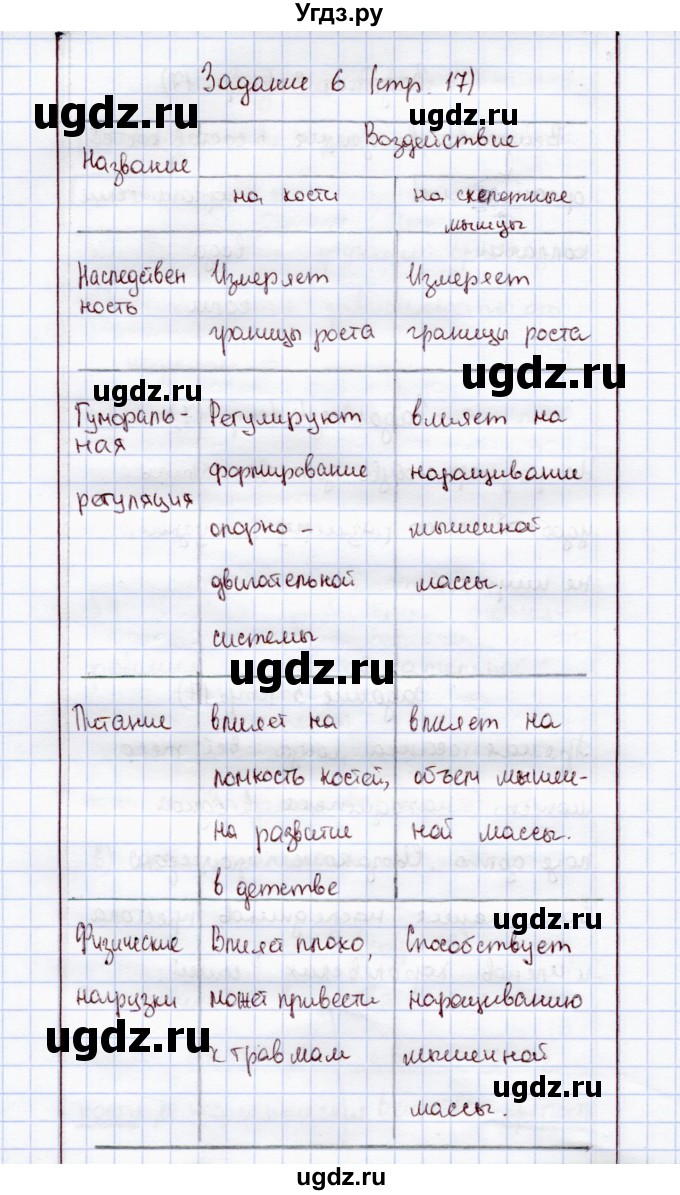 Угдз.ру
Задание 6 (стр. 17)
ugdz.ru
ugdz.ru
Название
Воздействие
на кости
на скелетные
мышцы
Наследствен
ность
Измеряет
границы роста
Измеряет
границы роста
ugdz.ru
ugdz.ru
Гумораль-
ная
регуляция
Регулируют
формирование
опорно-
двигательной
системы
влияет на
наращивание
мышечной
массы.
ugdz.ru
Питание
влияет на
ломкость костей,
на развитие
в детстве
влияет на
объем мышеч-
ной массы.
ugdz.ru
Физические
нагрузки
Влияет плохо,
может привести
к травмам
Способствует
наращиванию
мышечной
массы.
ugdz.ru
ugdz.ru
ugdz.ru